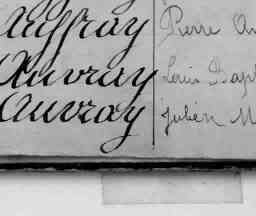 Auffray Pierre
Auvray Louis Bapt
Auvray Julien M